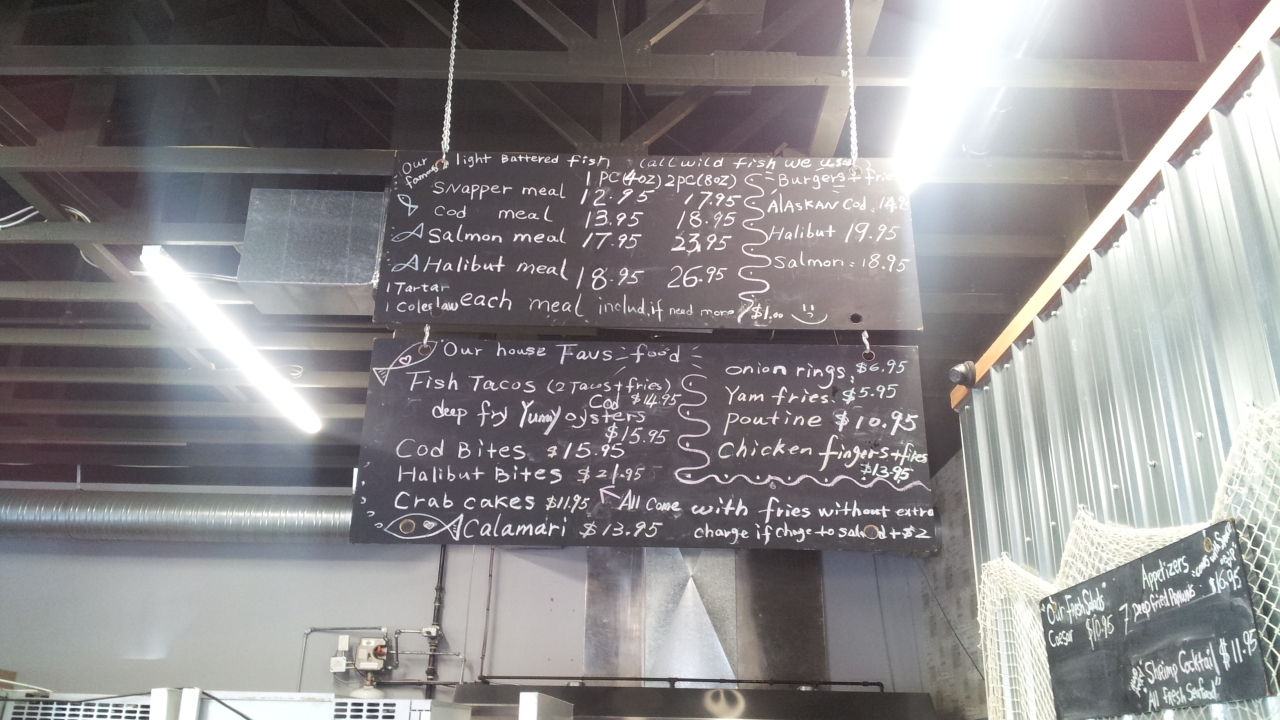 Our famous light Battered fish (all wild fish we use)
1 PC(4oz) 2PC(8oz)
Snapper meal 12.95 17.95
Cod meal 13.95 18.95
Salmon meal 17.95 23.95
Halibut meal 18.95 26.95
1 Tartar
1 Coleslaw each meal includ, if need more $1.00
Burgers + fries
AlASKAN Cod. 14.
Halibut 19.95
Salmon = 18.95
Our house Favs food
Fish Tacos (2 Tacos + fries)
Cod $14.95
deep fry Yummy oysters
$15.95
Cod Bites $15.95
Halibut Bites $21.95
Crab cakes $11.95
Calamari $13.95
onion rings. $6.95
Yam fries. $5.95
poutine $10.95
Chicken fingers + fries
$13.95
All come with fries without extra
charge if chage to salad + $2
"Our Fresh Salads"
Caesar $10.95
Appetizers
7 Deep Fried Prawns $16.95
Shrimp Cocktail $11.95
"All fresh Seafood"